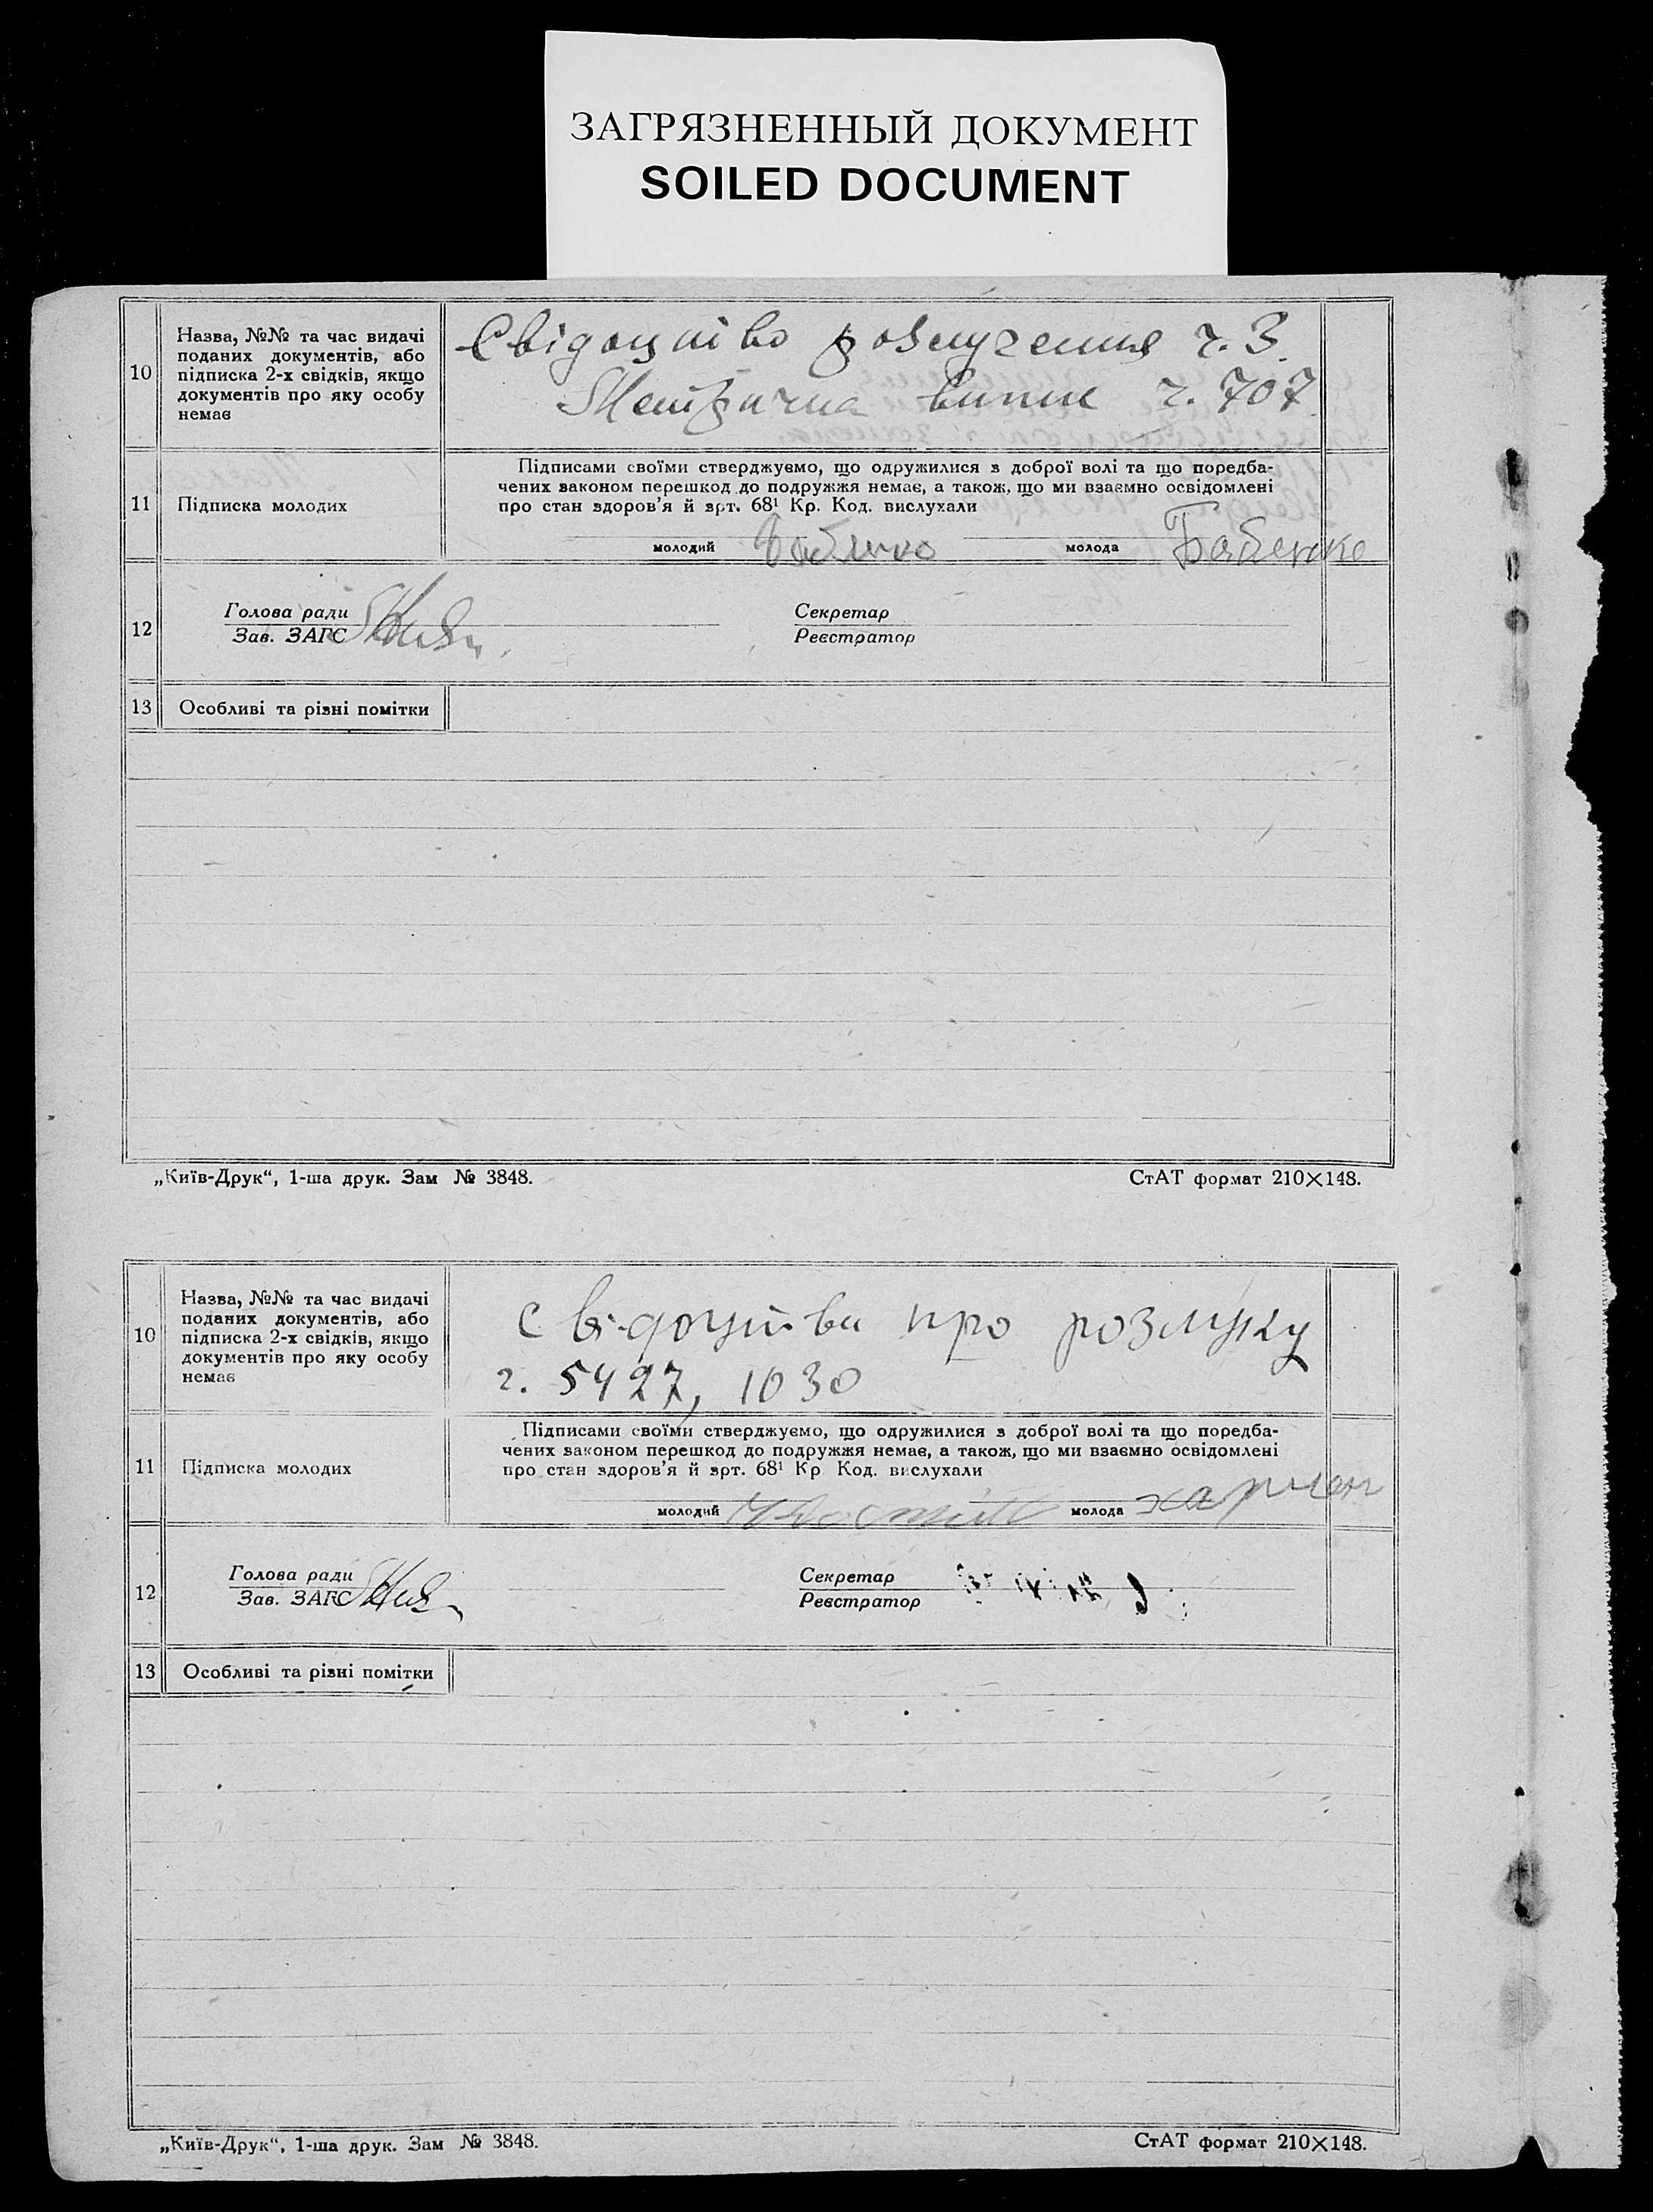 ЗАГРЯЗНЕННЫЙ ДОКУМЕНТ
SOILED DOCUMENT
10
Назва, №№ та час видачі
поданих документів, або
підписка 2-х свідків, якщо
документів про яку особу
немає
Свідоцтво розлучения ч. 3.
Метрична випис ч. 707
11
Підписка молодих
Підписами своїми стверджуємо, що одружилися з доброї волі та що передба-
чених законом перешкод до подружжя немає, а також, що ми взаємно освідомлені
про стан здоров'я й арт. 68¹ Кр. Код. вислухали
молодий
молода Бабенко
12
Голова ради
Зав. ЗАГС
Секретар
Реєстратор
13
Особливі та різні помітки
„Київ-Друк“, 1-ша друк. Зам № 3848.
СтАТ формат 210×148.
10
Назва, №№ та час видачі
поданих документів, або
підписка 2-х свідків, якщо
документів про яку особу
немає
Свідоцтва про розлуку
ч. 5427, 1030
11
Підписка молодих
Підписами своїми стверджуємо, що одружилися з доброї волі та що передба-
чених законом перешкод до подружжя немає, а також, що ми взаємно освідомлені
про стан здоров'я й арт. 68¹ Кр Код. вислухали
молодий
молода
12
Голова ради
Зав. ЗАГС
Секретар
Реєстратор
13
Особливі та різні помітки
„Київ-Друк“, 1-ша друк. Зам № 3848.
СтАТ формат 210×148.